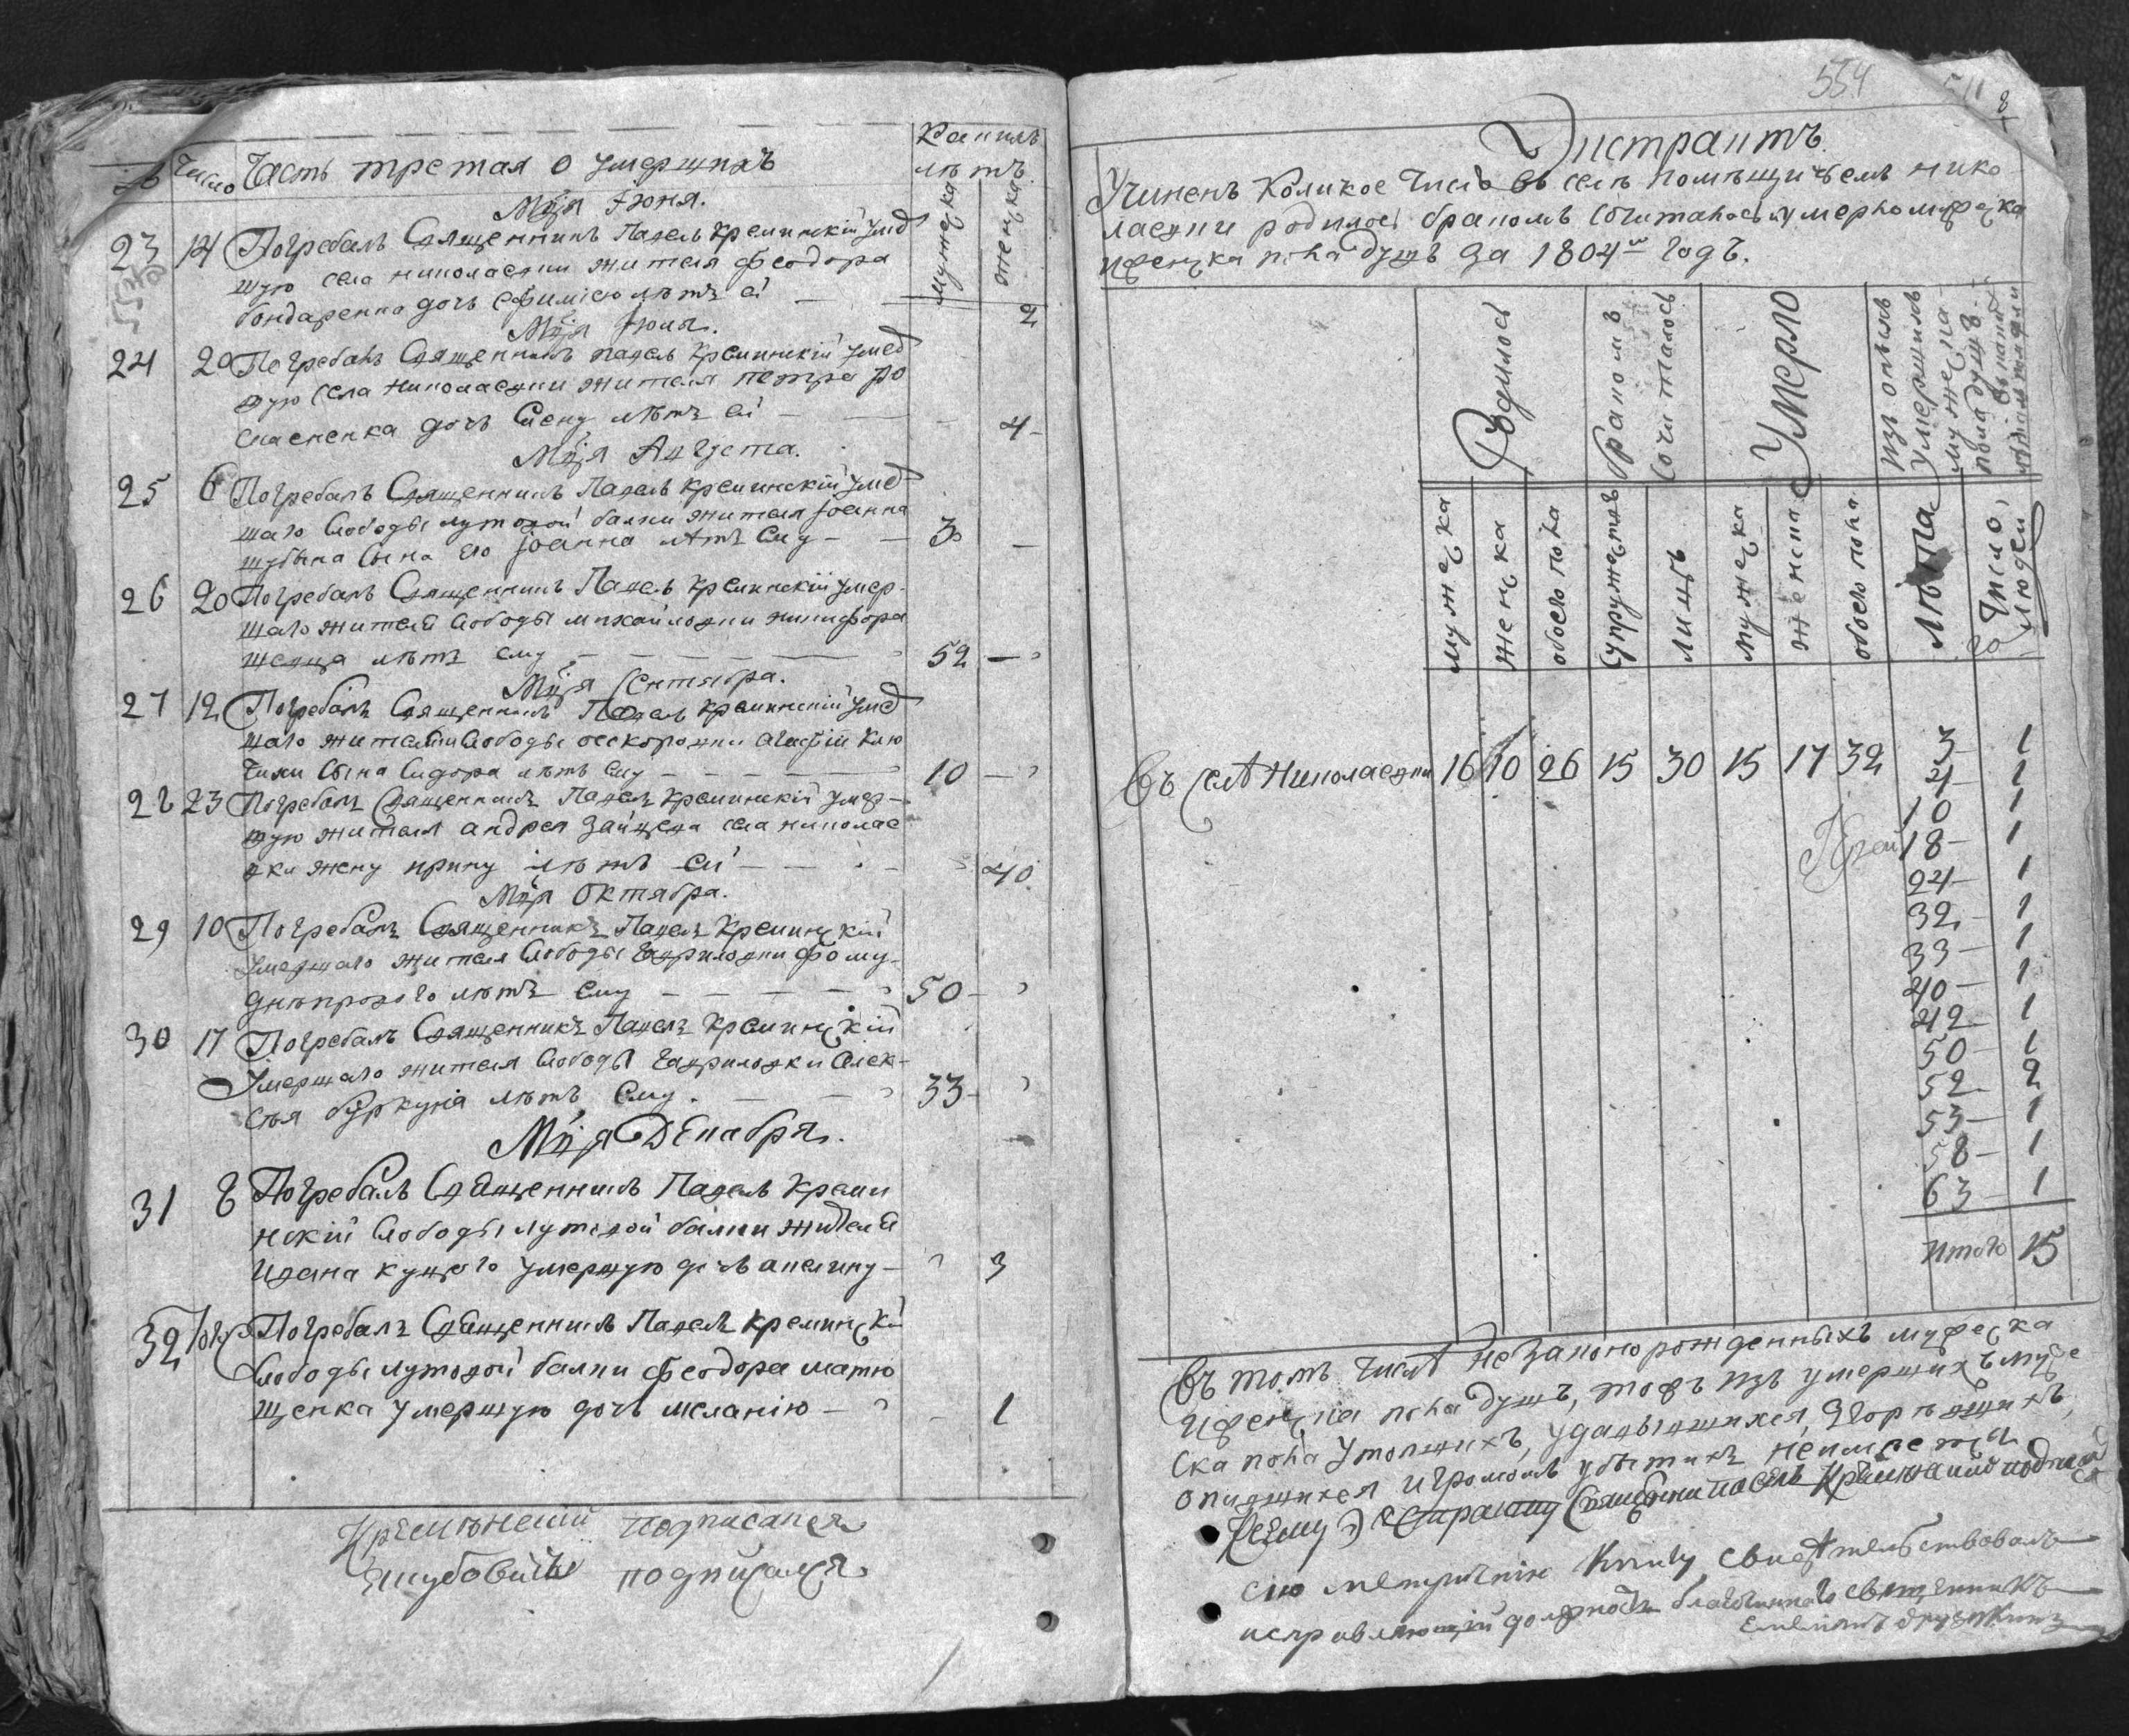 Число Часть третая о умершихъ
Каких лѣтъ
мужеска
женска
Мця Іюня.
23 14 Погребалъ Священникъ Павелъ Креминскій умер
шую села Николаевки жителя Феодора
бондаренка дочь Ефимію лѣтъ ей — 2
Мця Іюля.
24 20 Погребалъ Священникъ Павелъ Креминскій умер
шую села Николаевки жителя Петра
дочь Елену лѣтъ ей — 4
Мця Августа.
25 6 Погребалъ Священникъ Павелъ Креминскій умер
шаго Слободы лутовой балки жителя Іоанна
сына его Іоанна лѣтъ ему — 3 —
26 20 Погребалъ Священникъ Павелъ Креминскій умер
шаго жителя Слободы михайловки никифора
швеца лѣтъ ему — 52 —
Мця Сентября.
27 12 Погребалъ Священникъ Павелъ Креминскій умер
шаго жителя Слободы
сына Сидора лѣтъ ему — 10 —
28 23 Погребалъ Священникъ Павелъ Креминскій умер
шую жителя андрея Зайцева села николае
вки жену ирину лѣтъ ей — 40
Мця Октября.
29 10 Погребалъ Священникъ Павелъ Креминскій
Умершаго жителя Слободы Гавриловки фому
днѣпрового лѣтъ ему — 50 —
30 17 Погребалъ Священникъ Павелъ Креминскій
Умершаго жителя Слободы Гавриловки Алек
сѣя буркуна лѣтъ ему — 33 —
Мця Декабря.
31 8 Погребалъ Священникъ Павелъ Креми
нскій Слободы лутовой балки жителя
Ивана куцого умершую дочь акилину — 3
32 Погребалъ Священникъ Павелъ Креминскій
Слободы лутовой балки Феодора матю
щенка умершую дочь меланію — 1
Кремѣнский подписался
подписался
554
Экстрактъ.
Учиненъ Коликое число въ селѣ помѣщичьемъ нико
лаевки родилось бракомъ сочиталось и умерло мужеска
и женска пола душъ за 1804й годъ.
Родилось
бракомъ сочиталось
Умерло
изъ оныхъ умершихъ мужеска пола душъ
мужеска
женска
обоего пола
супружествъ
лицъ
мужеска
женска
обоего пола
Лѣта
Число людей
Въ селѣ Николаевки 16 10 26 15 30 15 17 32 3 1
4 1
10 1
18 1
24 1
32 1
33 1
40 1
42 1
50 1
52 2
53 1
58 1
63 1
Итого 15
Въ томъ числѣ незаконорожденныхъ мужеска
и женска пола душъ, тожъ изъ умершихъ муже
ска пола утопшихъ, удавившихся, згорѣвшихъ,
опившихся и громомъ убитыхъ неимѣется
К сему Экстракту священник Павелъ Креминский подписался
сию метричнію Книгу свидѣтельствовалъ
исправляющій должность благочиннаго священникъ